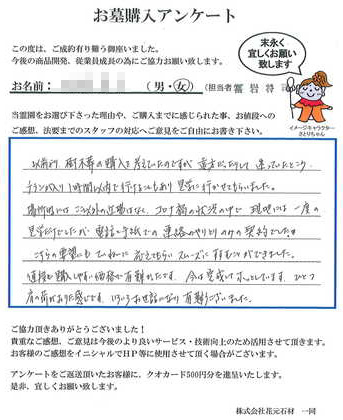 お墓購入アンケート
この度は、ご成約有り難う御座いました。
今後の商品開発、従業員成長の為にご協力お願い致します。
末永く
宜しくお願い
致します
お名前:
(男・女)
(担当者
当霊園をお選び下さった理由や、ご購入までに感じられた事、お値段への
ご感想、法要までのスタッフの対応へご意見をご自由にお書き下さい。
イメージキャラクター
さとりちゃん
以前から樹木葬の購入を考えていたのですが
チラシが入り1時間以内で行けることもあり見学に行かせてもらいました。
コロナ禍の状況の中で現地には一度の
見学だけでしたが電話や手紙での連絡のやりとりのみの契約でしたが
こちらの要望にもていねいに応えてもらいスムーズに
価格で有難かったです。今は完成してホッとしています。ひとつ
肩の荷がおりた感じです。いろいろお世話になり有難うございました。
ご協力頂きありがとうございました！
貴重なご感想、ご意見は今後のより良いサービス・技術向上のため活用させて頂きます。
お客様のご感想をイニシャルでHP等に使用させて頂く場合がございます。
アンケートをご返送頂いたお客様に、クオカード500円分を進呈いたします。
是非、宜しくお願い致します。
株式会社花元石材 一同